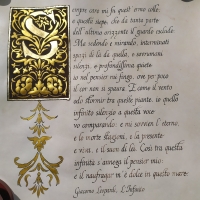 S
empre caro mi fu quest'ermo colle,
e questa siepe, che da tanta parte
dell'ultimo orizzonte il guardo esclude.
Ma sedendo e mirando, interminati
spazi di là da quella, e sovrumani
silenzi, e profondissima quiete
io nel pensier mi fingo, ove per poco
il cor non si spaura. E come il vento
odo stormir tra queste piante, io quello
infinito silenzio a questa voce
vo comparando: e mi sovvien l'eterno,
e le morte stagioni, e la presente
e viva, e il suon di lei. Così tra questa
infinità s'annega il pensier mio:
e il naufragar m'è dolce in questo mare.
Giacomo Leopardi, L'Infinito